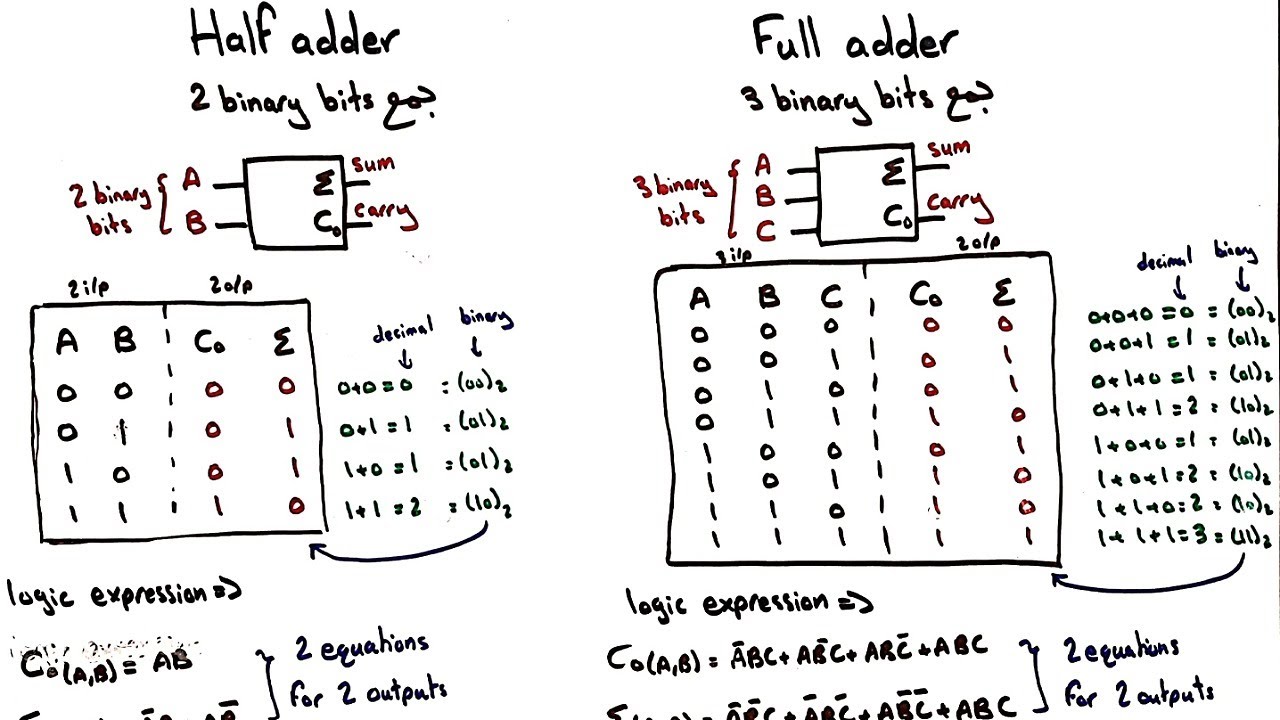 Half adder
2 binary bits جمع
2 binary bits { A B
Σ sum
C₀ carry
2 i/p 2 o/p
A B C₀ Σ
0 0 0 0
0 1 0 1
1 0 0 1
1 1 1 0
decimal binary
0+0=0 = (00)₂
0+1=1 = (01)₂
1+0=1 = (01)₂
1+1=2 = (10)₂
logic expression =>
C₀(A,B) = AB
2 equations
for 2 outputs
Full adder
3 binary bits جمع
3 binary bits { A B C
Σ sum
C₀ carry
3 i/p 2 o/p
A B C C₀ Σ
0 0 0 0 0
0 0 1 0 1
0 1 0 0 1
0 1 1 1 0
1 0 0 0 1
1 0 1 1 0
1 1 0 1 0
1 1 1 1 1
decimal binary
0+0+0=0 = (00)₂
0+0+1=1 = (01)₂
0+1+0=1 = (01)₂
0+1+1=2 = (10)₂
1+0+0=1 = (01)₂
1+0+1=2 = (10)₂
1+1+0=2 = (10)₂
1+1+1=3 = (11)₂
logic expression =>
C₀(A,B) = A̅BC + AB̅C + ABC̅ + ABC
A̅B̅C + A̅BC̅ + AB̅C̅ + ABC
2 equations
for 2 outputs